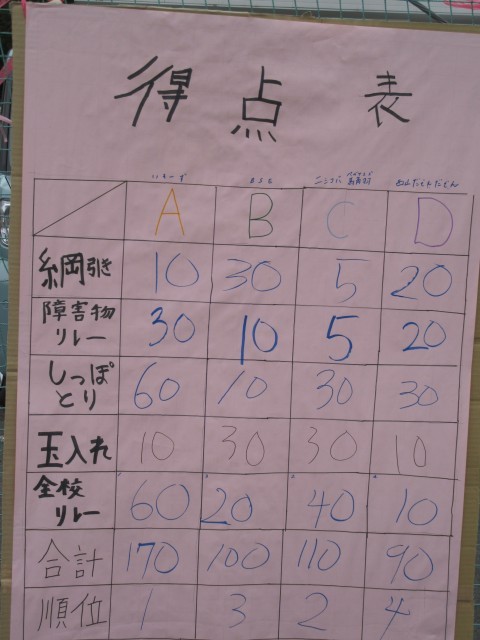 得点表
A B C D
綱引き 10 30 5 20
障害物リレー 30 10 5 20
しっぽとり 60 10 30 30
玉入れ 10 30 30 10
全校リレー 60 20 40 10
合計 170 100 110 90
順位 1 3 2 4